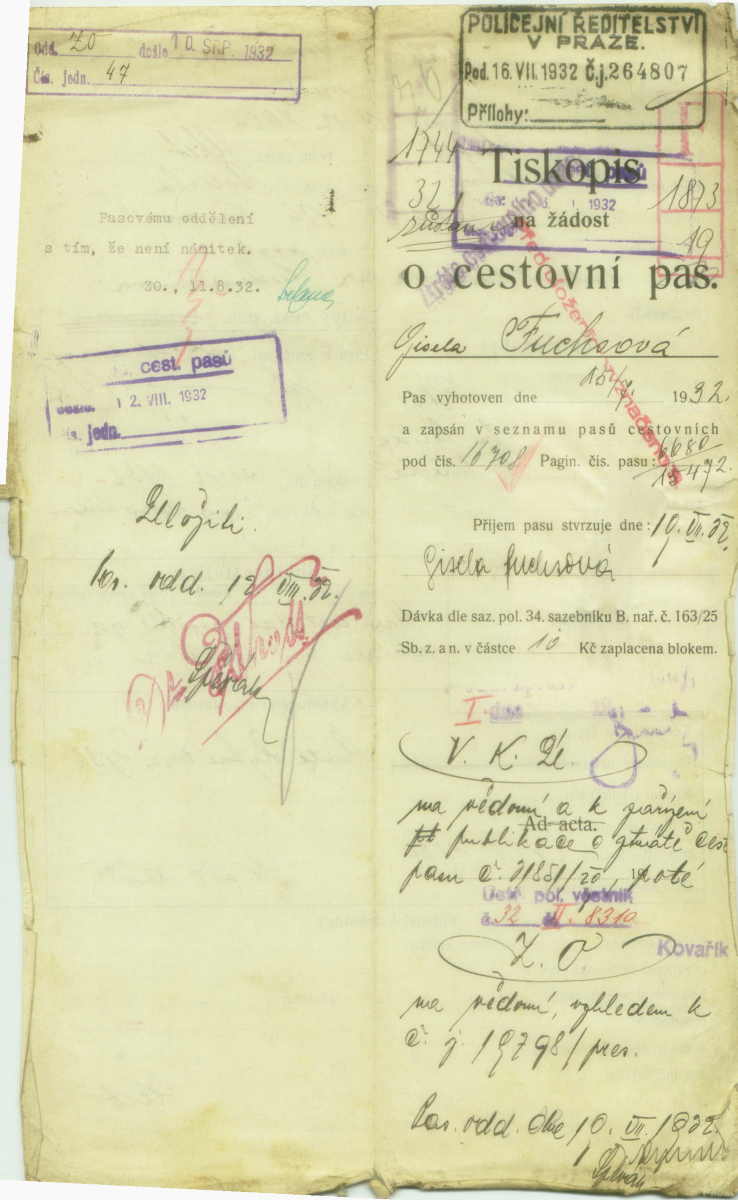 Odd. 20 došlo 10. SRP. 1932
Čís. jedn. 47
Pasovému oddělení
s tím, že není námitek.
20., 11.8.32.
cest. pasů
12. VIII. 1932
jedn.
Uložiti.
Pas. odd. 12 VIII. 32.
POLICEJNÍ ŘEDITELSTVÍ
V PRAZE.
Pod. 16. VII. 1932 Č.j. 264807
Přílohy:
1744
32
1873
19
1932
Tiskopis
na žádost
o cestovní pas.
Gisela Fuchsová
Pas vyhotoven dne 1932.
a zapsán v seznamu pasů cestovních
pod čís. 16708 Pagin. čís. pasu: 6680
15472.
Příjem pasu stvrzuje dne: 19. VII. 32.
Gisela Fuchsová
Dávka dle saz. pol. 34. sazebníku B. nař. č. 163/25
Sb. z. a n. v částce 10 Kč zaplacena blokem.
I.
V. K. Úř.
na vědomí a k zařízení
Ad acta.
publikace o ztrátě cest
pasu č. poté
Ústř. pol. věstník
č. 32 8310
Kovařík
Z. O.
na vědomí, vzhledem k
č. j. 19798/pres.
Pas. odd. dne 10. VII. 1932.